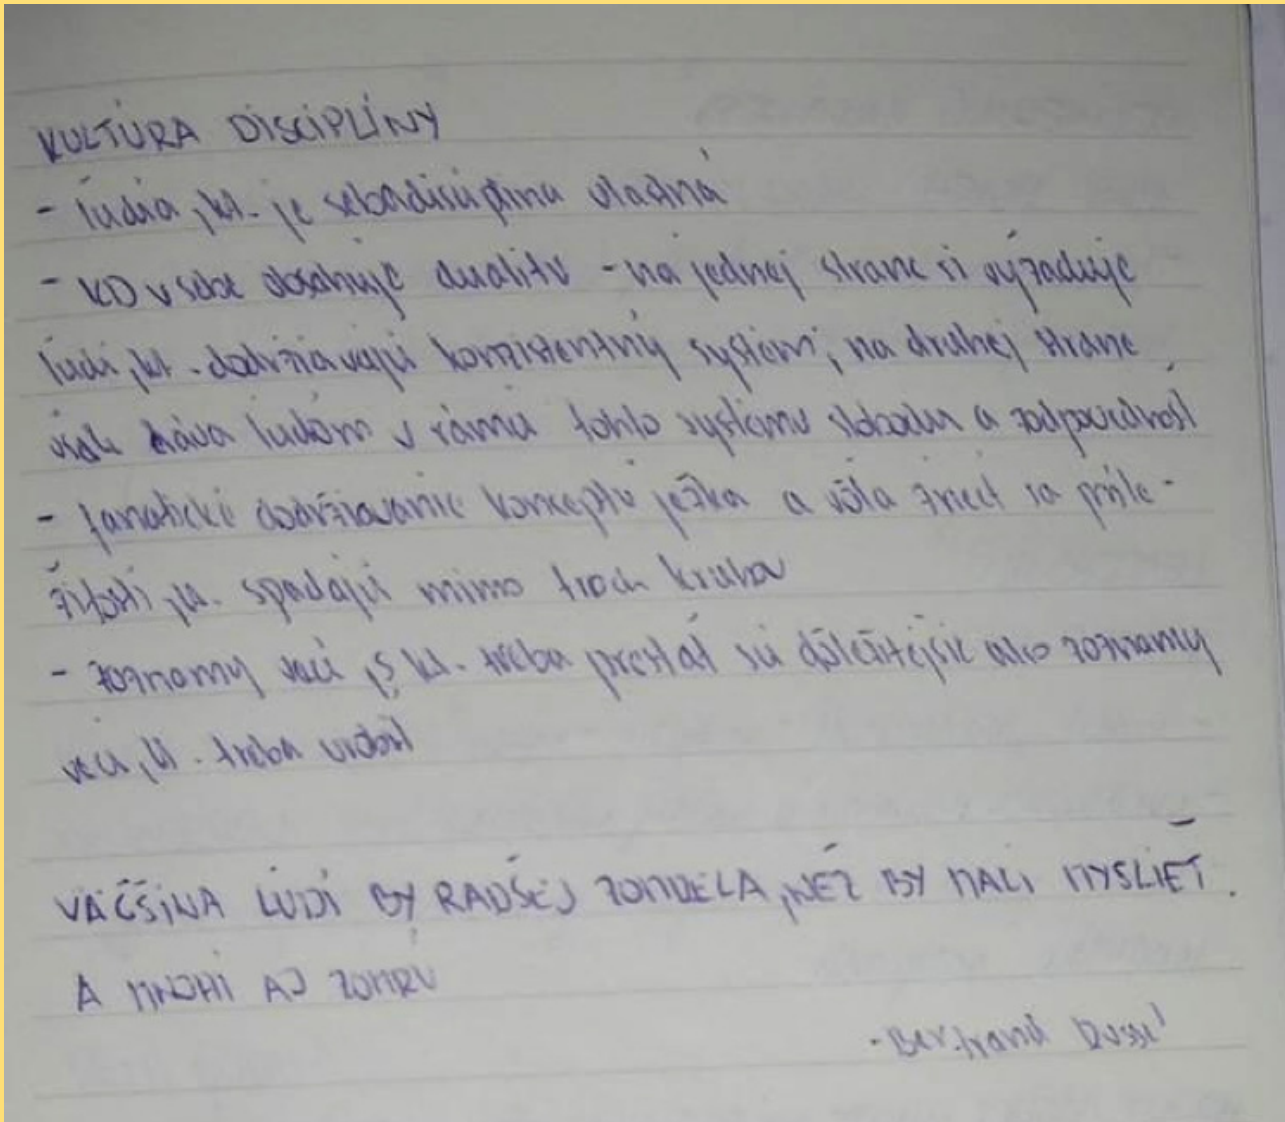 KULTÚRA DISCIPLÍNY
- ľudia, kt. je sebadisciplína vlastná
- KD v sebe obsahuje dualitu - na jednej strane si vyžaduje
ľudí, kt. dodržiavajú konzistentný systém, na druhej strane
však dáva ľuďom v rámci tohto systému slobodu a zodpovednosť
- fanatické dodržiavanie konceptu ježka a vôľa zriecť sa príle-
žitostí, kt. spadajú mimo troch kruhov
- zoznamy vecí, s kt. treba prestať sú dôležitejšie ako zoznamy
vecí, kt. treba urobiť
VÄČŠINA ĽUDÍ BY RADŠEJ ZOMRELA, NEŽ BY MALI MYSLIEŤ.
A MNOHÍ AJ ZOMRÚ
- Bertrand Russel